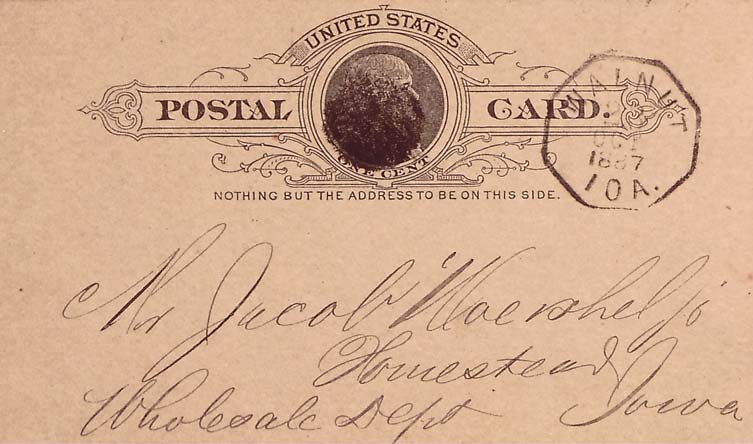 UNITED STATES
POSTAL CARD.
ONE CENT
NOTHING BUT THE ADDRESS TO BE ON THIS SIDE.
WALNUT
OCT
1887
IOA.
Mr Jacob Woershel jr
Homestead
Wholesale Dept Iowa